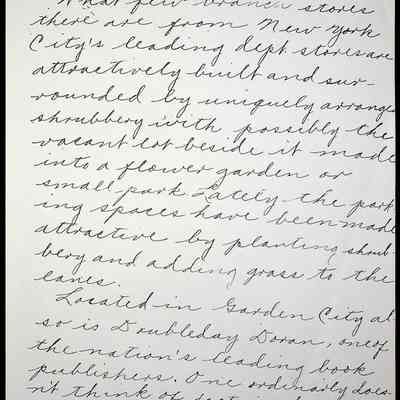 What few branch stores
there are from New York
City's leading dept stores are
attractively built and sur-
rounded by uniquely arrange
shrubbery with possibly the
vacant lot beside it made
into a flower garden or
small park Lately the park
ing spaces have been made
attractive by planting shrub-
bery and adding grass to the
lanes.
Located in Garden City al
so is Doubleday Doran, one of
the nation's leading book
publishers. One ordinarily does
n't think of